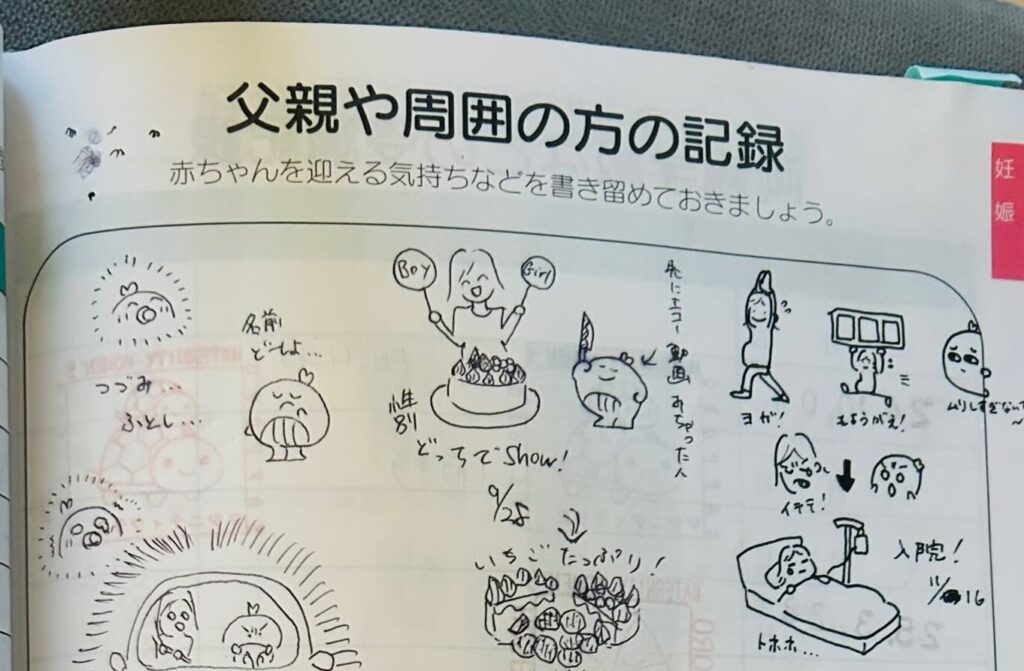 父親や周囲の方の記録
赤ちゃんを迎える気持ちなどを書き留めておきましょう。
妊娠
名前
どーしよ…
つづみ…
ふとし…
Boy
Girl
性別
どっちでShow!
9/28
いちごたっぷり!
先にエコー動画みちゃった人
ヨガ!
もようがえ!
ムリしすぎないで
イテテ!
入院!
11/16
トホホ…